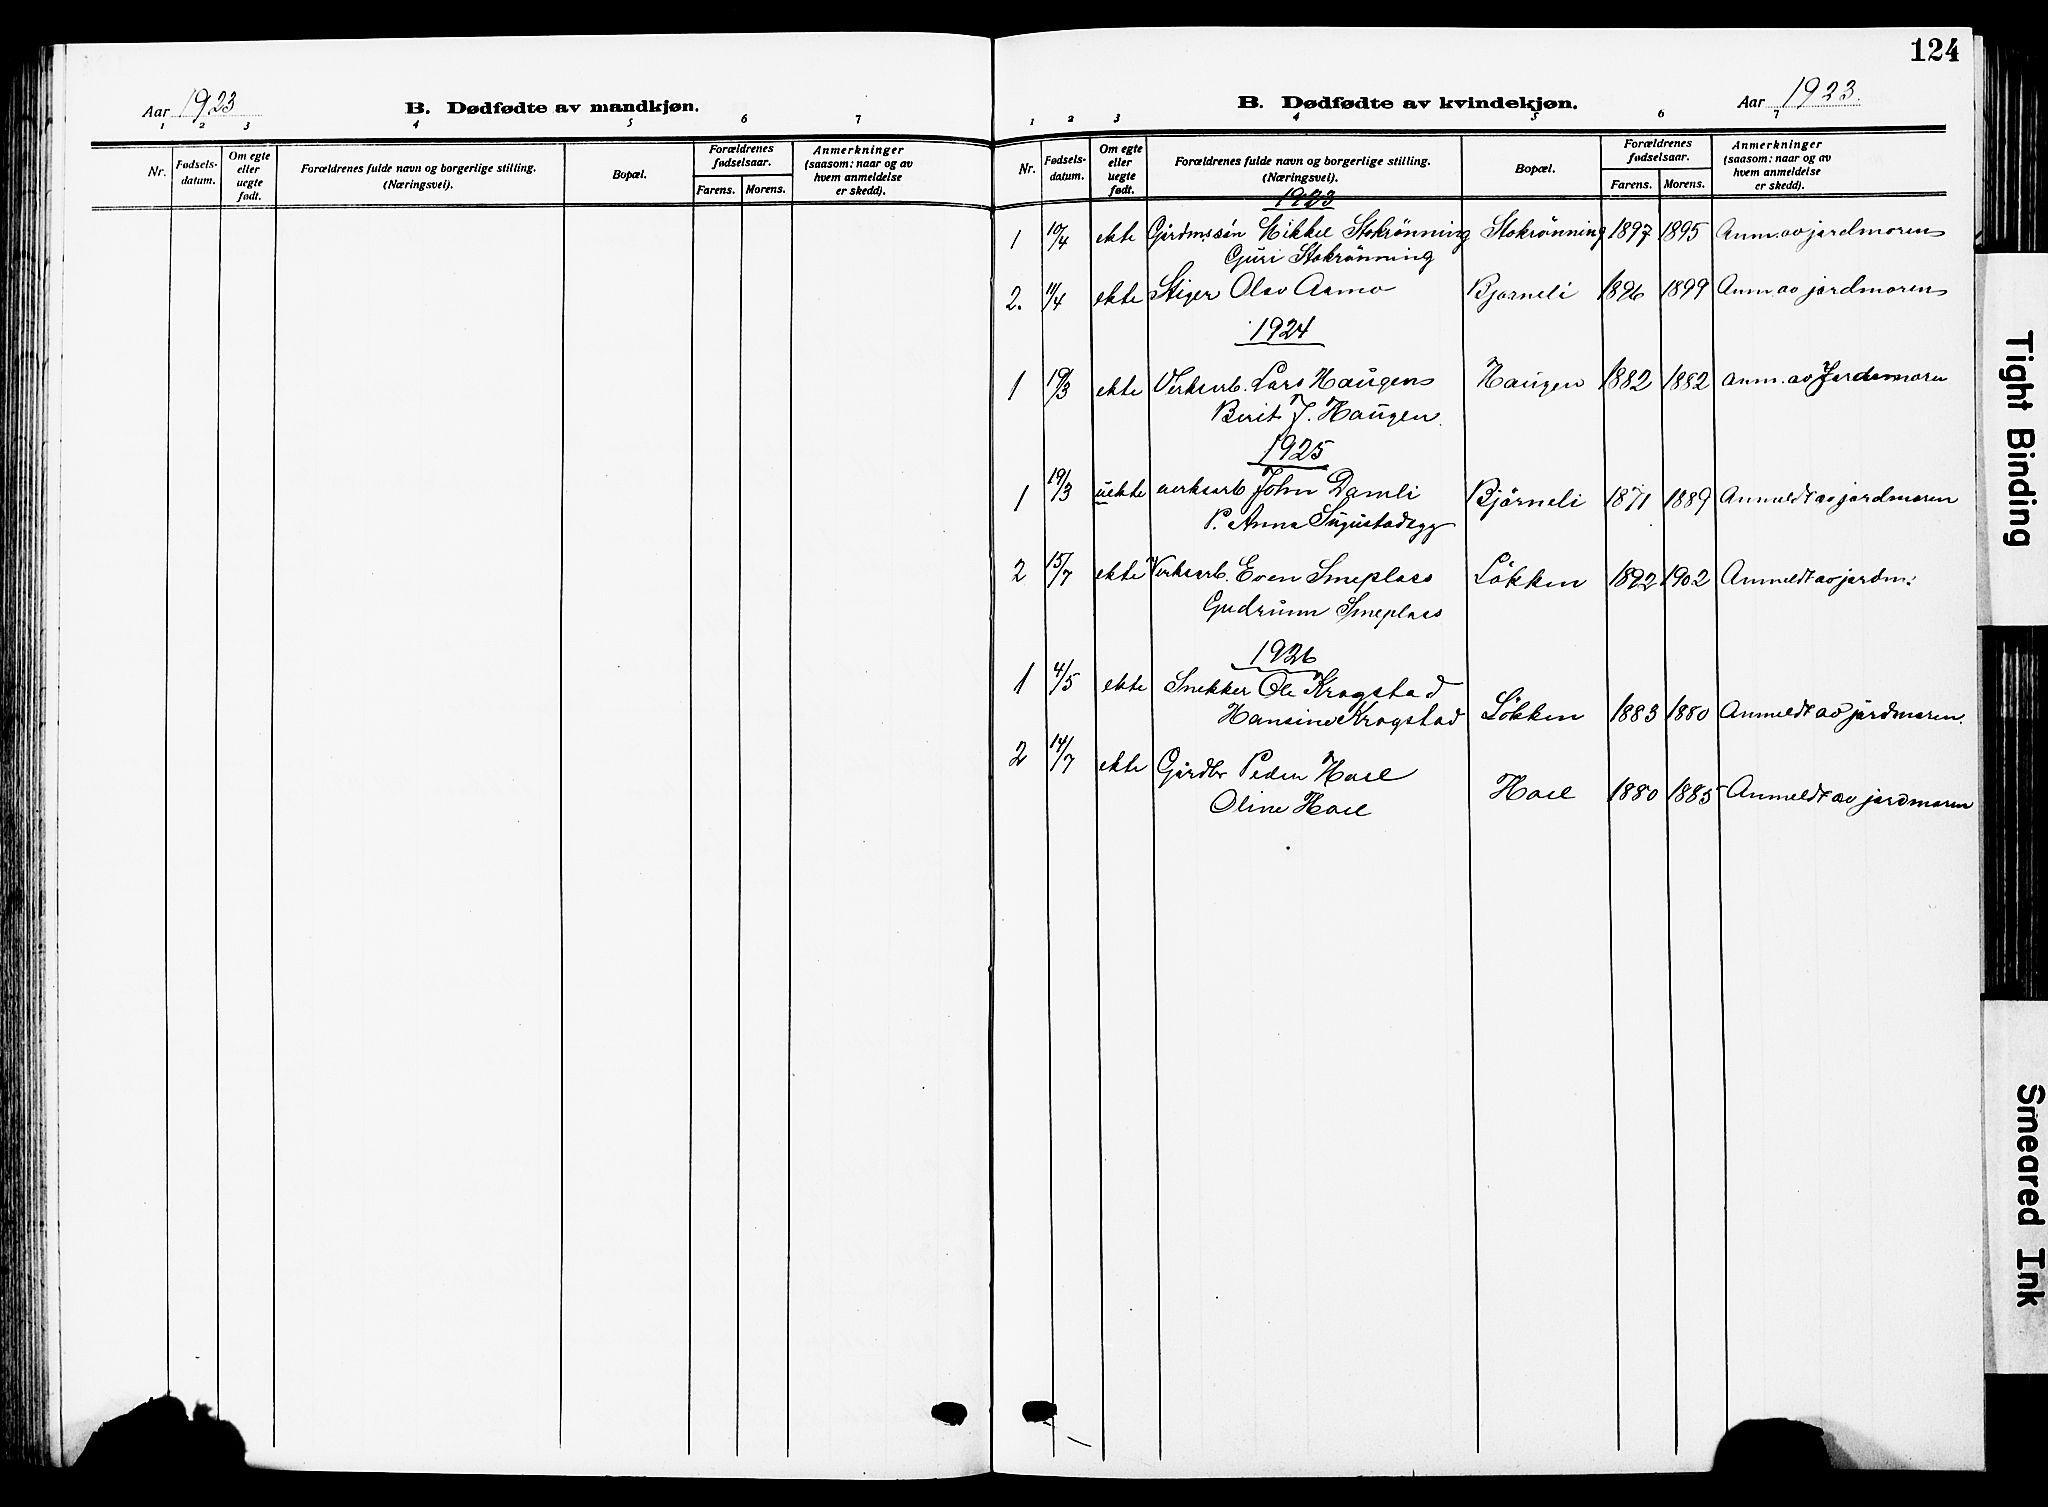 124
Aar 1923
B. Dødfødte av mandkjøn.
1 2 3 4 5 6 7
Nr. Fødsels-datum. Om egte eller uegte født. Forældrenes fulde navn og borgerlige stilling. (Næringsvei). Bopæl. Forældrenes fødselsaar. Farens. Morens. Anmerkninger (saasom: naar og av hvem anmeldelse er skedd).
B. Dødfødte av kvindekjøn.
Aar 1923.
1 2 3 4 5 6 7
Nr. Fødsels-datum. Om egte eller uegte født. Forældrenes fulde navn og borgerlige stilling. (Næringsvei). Bopæl. Forældrenes fødselsaar. Farens. Morens. Anmerkninger (saasom: naar og av hvem anmeldelse er skedd).
1923
1 10/4 ekte Gårdmssön Mikkel Stokrönning Stokrönning 1897 1895 Anm. av jordmoren
Guri Stokrönning
2. 11/4 ekte Stiger Olav Aamo Bjorneli 1896 1899 Anm. av jordmoren
1924
1 19/3 ekte Verksarb. Lars Haugen Haugen 1882 1882 anm. av Jordmoren
Berit J. Haugen.
1925
1 19/3 uekte verksarb John Damli Björneli 1871 1889 Anmeldt av jordmoren
P. Anna
2 15/7 ekte Verksarb. Even Smeplass Lökken 1892 1902 Anmeldt av jordm.
Gudrunn Smeplass
1926
1 4/5 ekte Snekker Ole Krogstad
Hansine Krogstad Lökken 1883 1880 Anmeldt av jordmoren.
2 14/7 ekte Gårdbr Peder Hoel
Oline Hoel Hoel 1880 1885 Anmeldt av jordmoren
Tight Binding
Smeared Ink